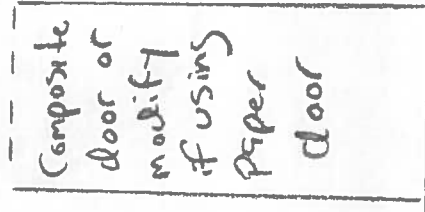 Composite
door or
modify
if using
paper
door